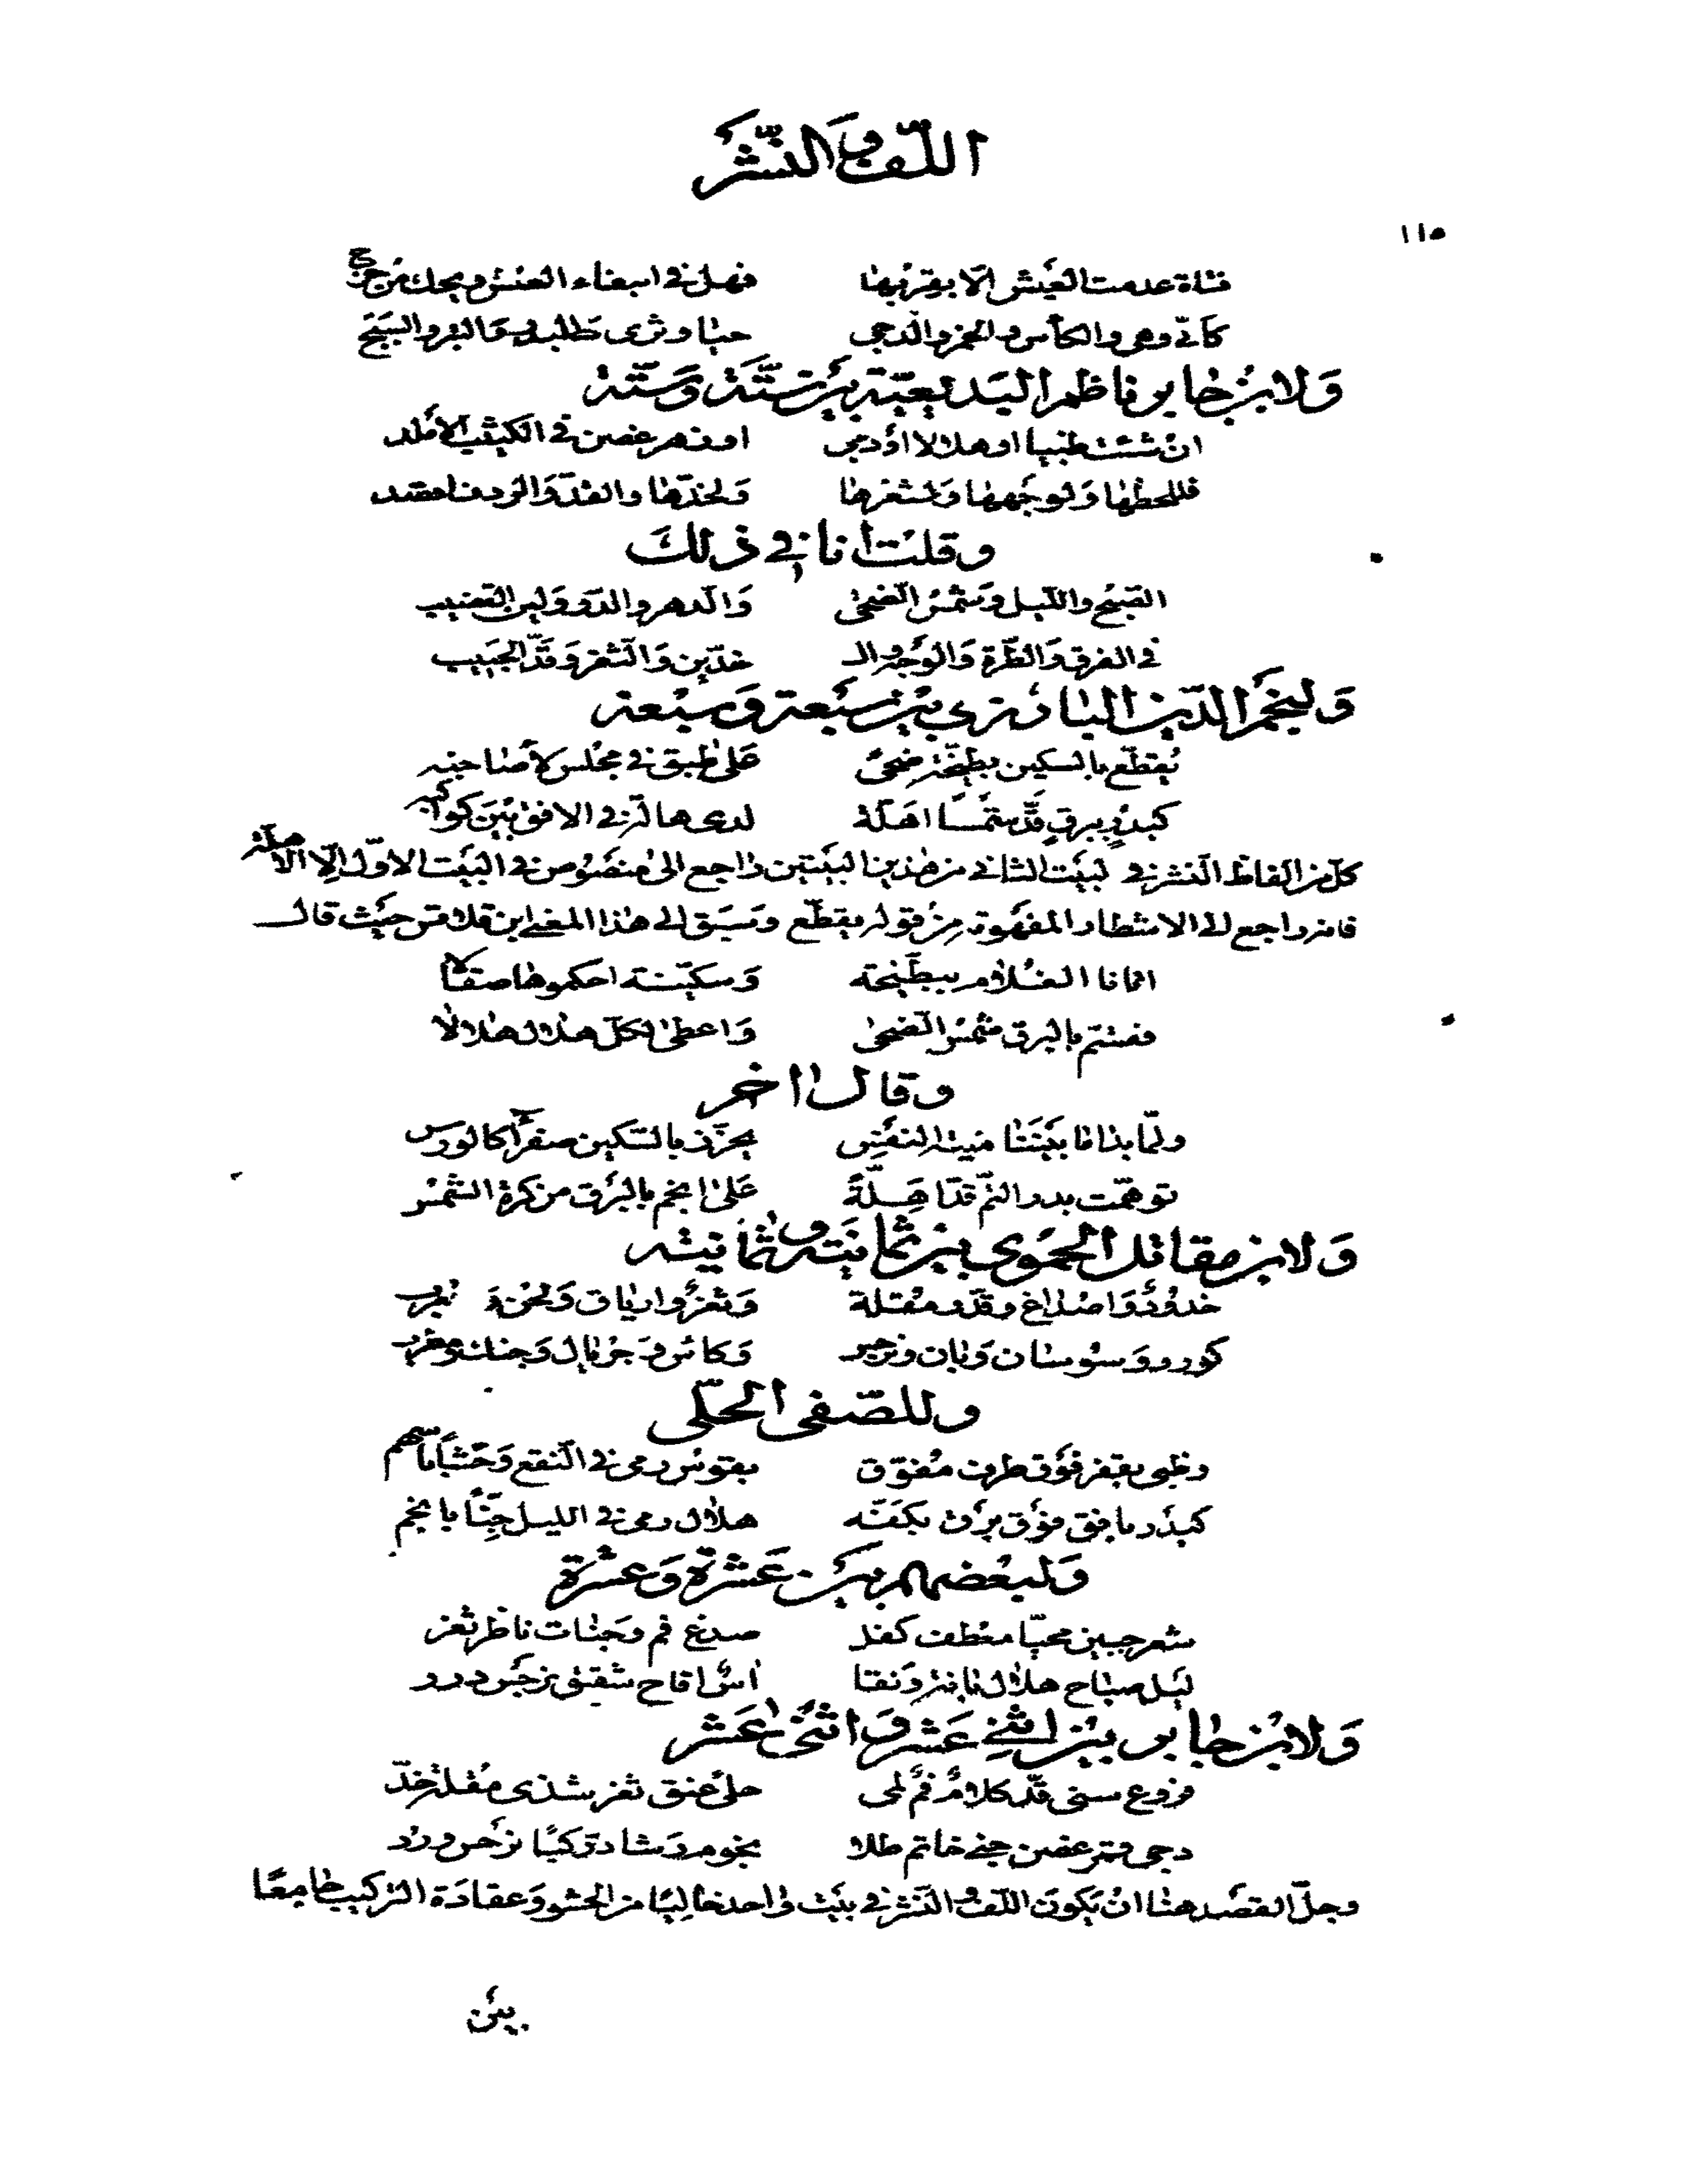 اللّف والنّشر
١١٥
فتاة عدمت العيش الّا بقربها فهل فى ابتغاء العيش ويحك من حرج
كأنّى وهى والكأس والخمر والدّجى حيا وثرى والدر والتبر والسبج
ولابن جابر ناظم البديعيّة بين ستّة وستّة
ان شئت ظبيا او هلالا او دجى او زهر غصن فى الكثيب الأملد
فللحظها ولوجهها ولشعرها ولخدّها والقدّ والردف اقصد
وقلت انا فى ذلك
الصّبح واللّيل وشمس الضّحى والدهر والدرّ ولين القضيب
فى الفرق والطّرّة والوجه والـ خدّين والثّغر وقدّ الحبيب
ولنجم الدّين البارزى بين سبعة وسبعة
يُقطّع بالسكين بطّيخة ضحىً على طبق فى مجلس لأصاحبه
كبدر ببرق قدّ شمسًا اهلّة لدى هالة فى الافق بين كواكبه
كلّ من الفاظ النشر فى البيت الثانى من هذين البيتين راجع الى منصوص فى البيت الاوّل الّا الاهلّة
فانه راجع الى الاشطار المفهومة من قوله يقطّع وسبق الى هذا المعنى ابن قلاقس حيث قال
اتانا الغلام ببطّيخة وسكّينة احكموها صقالا
فقسّم بالبرق شمس الضّحى واعطى لكلّ هلال هلالا
وقال آخر
ولمّا بدا ما بيننا منية النفس يحزّز بالسّكين صفرآ كالورس
توهّمت بدر التّم قدّ اهلّةً على انجم بالبرق من كرة الشّمس
ولابن مقاتل الحموى بين ثمانية وثمانية
خدود واصداغ وقدّ ومقلة وثغر وارياق ولحن ومعرب
كورد وسوسان وبان ونرجس وكأس وجريال وجنك ومطرب
وللصّفى الحلّى
وظبى بقفر فوق طرف مفوّق بقوس رمى فى النّقع وحشًا باسهم
كبدر بافق فوق برق بكفّه هلال رمى فى الليل جنًّا بانجم
ولبعضهم بين عشرة وعشرة
شعر جبين محيّا معطف كفل صدغ فم وجنات ناظر ثغر
ليل صباح هلال بانة ونقا آس اقاح شقيق نرجس درر
ولابن جابر بين اثنى عشر واثنى عشر
فروع سنى قدّ كلام فم لمى حلى عنق ثغر شذى مقلة خدّ
دجى قمر غصن جنى خاتم طلا نجوم رشا درّ كبا نرجس ورد
وجلّ القصد هنا ان يكون اللّف والنّشر فى بيت واحد خاليا من الحشو وعقادة التركيب جامعًا
بين